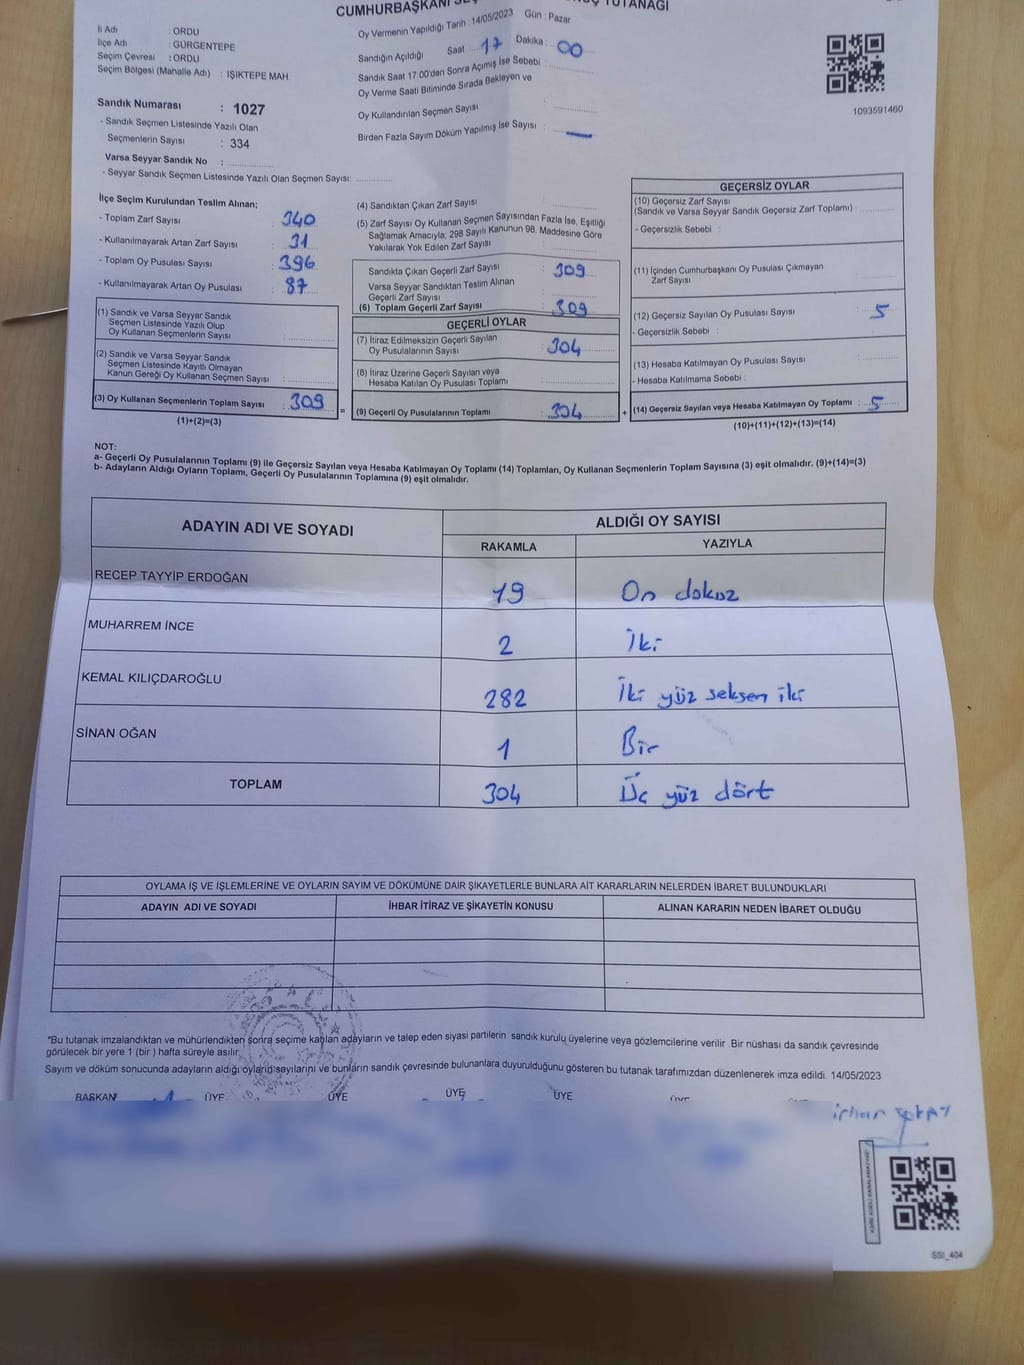 CUMHURBAŞKANI
TUTANAĞI
İli Adı : ORDU
İlçe Adı : GÜRGENTEPE
Seçim Çevresi : ORDU
Seçim Bölgesi (Mahalle Adı) : IŞIKTEPE MAH.
Sandık Numarası : 1027
- Sandık Seçmen Listesinde Yazılı Olan
Seçmenlerin Sayısı : 334
Varsa Seyyar Sandık No :
- Seyyar Sandık Seçmen Listesinde Yazılı Olan Seçmen Sayısı:
Oy Vermenin Yapıldığı Tarih : 14/05/2023 Gün : Pazar
Sandığın Açıldığı Saat 17 Dakika : 00
Sandık Saat 17:00'den Sonra Açımış İse Sebebi :
Oy Verme Saati Bitiminde Sırada Bekleyen ve
Oy Kullandırılan Seçmen Sayısı :
Birden Fazla Sayım Döküm Yapılmış İse Sayısı : —
1093591460
İlçe Seçim Kurulundan Teslim Alınan;
- Toplam Zarf Sayısı : 340
- Kullanılmayarak Artan Zarf Sayısı : 31
- Toplam Oy Pusulası Sayısı : 396
- Kullanılmayarak Artan Oy Pusulası : 87
(1) Sandık ve Varsa Seyyar Sandık
Seçmen Listesinde Yazılı Olup
Oy Kullanan Seçmenlerin Sayısı :
(2) Sandık ve Varsa Seyyar Sandık
Seçmen Listesinde Kayıtlı Olmayan
Kanun Gereği Oy Kullanan Seçmen Sayısı :
(3) Oy Kullanan Seçmenlerin Toplam Sayısı : 309
(1)+(2)=(3)
=
(4) Sandıktan Çıkan Zarf Sayısı :
(5) Zarf Sayısı Oy Kullanan Seçmen Sayısından Fazla İse, Eşitliği
Sağlamak Amacıyla; 298 Sayılı Kanunun 98. Maddesine Göre
Yakılarak Yok Edilen Zarf Sayısı :
Sandıkta Çıkan Geçerli Zarf Sayısı : 309
Varsa Seyyar Sandıktan Teslim Alınan
Geçerli Zarf Sayısı :
(6) Toplam Geçerli Zarf Sayısı : 309
GEÇERLİ OYLAR
(7) İtiraz Edilmeksizin Geçerli Sayılan
Oy Pusulalarının Sayısı : 304
(8) İtiraz Üzerine Geçerli Sayılan veya
Hesaba Katılan Oy Pusulası Toplamı :
(9) Geçerli Oy Pusulalarının Toplamı : 304
+
GEÇERSİZ OYLAR
(10) Geçersiz Zarf Sayısı
(Sandık ve Varsa Seyyar Sandık Geçersiz Zarf Toplamı) :
- Geçersizlik Sebebi :
(11) İçinden Cumhurbaşkanı Oy Pusulası Çıkmayan
Zarf Sayısı :
(12) Geçersiz Sayılan Oy Pusulası Sayısı : 5
- Geçersizlik Sebebi :
(13) Hesaba Katılmayan Oy Pusulası Sayısı :
- Hesaba Katılmama Sebebi :
(14) Geçersiz Sayılan veya Hesaba Katılmayan Oy Toplamı : 5
(10)+(11)+(12)+(13)=(14)
NOT:
a- Geçerli Oy Pusulalarının Toplamı (9) ile Geçersiz Sayılan veya Hesaba Katılmayan Oy Toplamı (14) Toplamları, Oy Kullanan Seçmenlerin Toplam Sayısına (3) eşit olmalıdır. (9)+(14)=(3)
b- Adayların Aldığı Oyların Toplamı, Geçerli Oy Pusulalarının Toplamına (9) eşit olmalıdır.
ADAYIN ADI VE SOYADI
ALDIĞI OY SAYISI
RAKAMLA YAZIYLA
RECEP TAYYİP ERDOĞAN 19 On dokuz
MUHARREM İNCE 2 İki
KEMAL KILIÇDAROĞLU 282 İki yüz seksen iki
SİNAN OĞAN 1 Bir
TOPLAM 304 Üç yüz dört
OYLAMA İŞ VE İŞLEMLERİNE VE OYLARIN SAYIM VE DÖKÜMÜNE DAİR ŞİKAYETLERLE BUNLARA AİT KARARLARIN NELERDEN İBARET BULUNDUKLARI
ADAYIN ADI VE SOYADI İHBAR İTİRAZ VE ŞİKAYETİN KONUSU ALINAN KARARIN NEDEN İBARET OLDUĞU
*Bu tutanak imzalandıktan ve mühürlendikten sonra seçime katılan adayların ve talep eden siyasi partilerin sandık kurulu üyelerine veya gözlemcilerine verilir .Bir nüshası da sandık çevresinde
görülecek bir yere 1 (bir ) hafta süreyle asılır.
Sayım ve döküm sonucunda adayların aldığı oyların sayılarını ve bunların sandık çevresinde bulunanlara duyurulduğunu gösteren bu tutanak tarafımızdan düzenlenerek imza edildi. 14/05/2023
BAŞKAN ÜYE ÜYE ÜYE ÜYE ÜYE
SSI_404